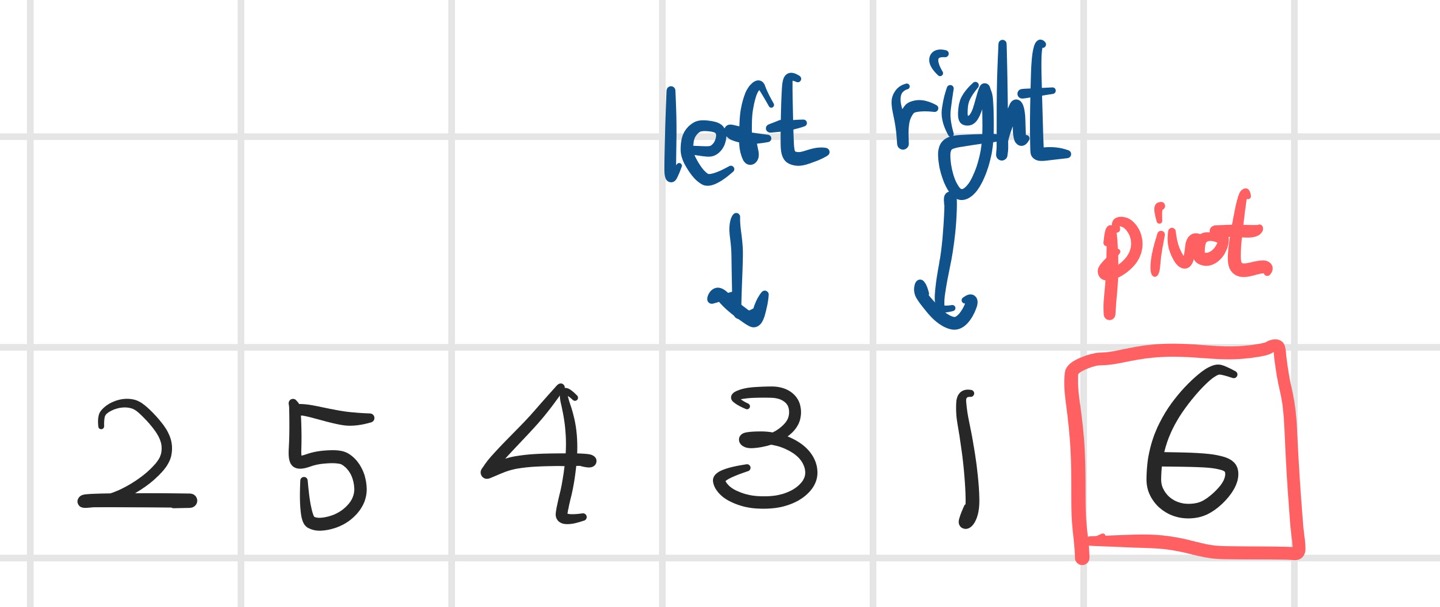 left right
pivot
2 5 4 3 1 6